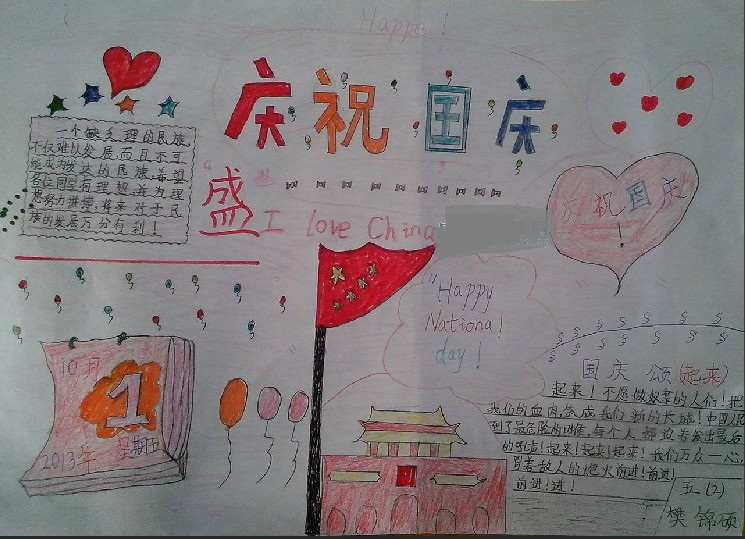 Happy!
庆祝国庆
一个缺乏理的民族
不仅难以发展而且不可
能成为发达的民族,希望
各位同学有理想,并为理
想努力拼搏,将来对于民
族的发展万分有利!
"盛"
I love China
庆祝国庆
!
"Happy
National
day!
10月
1
2013年 星期五
国庆颂(起来)
起来!不愿做奴隶的人们!把
我们的血肉筑成我们新的长城!中国人民
到了最危险的时候,每个人都迫着发出最后
的吼声!起来!起来!起来!我们万众一心,
冒着敌人的炮火前进!前进!
前进!进!
五(2)
樊锦硕